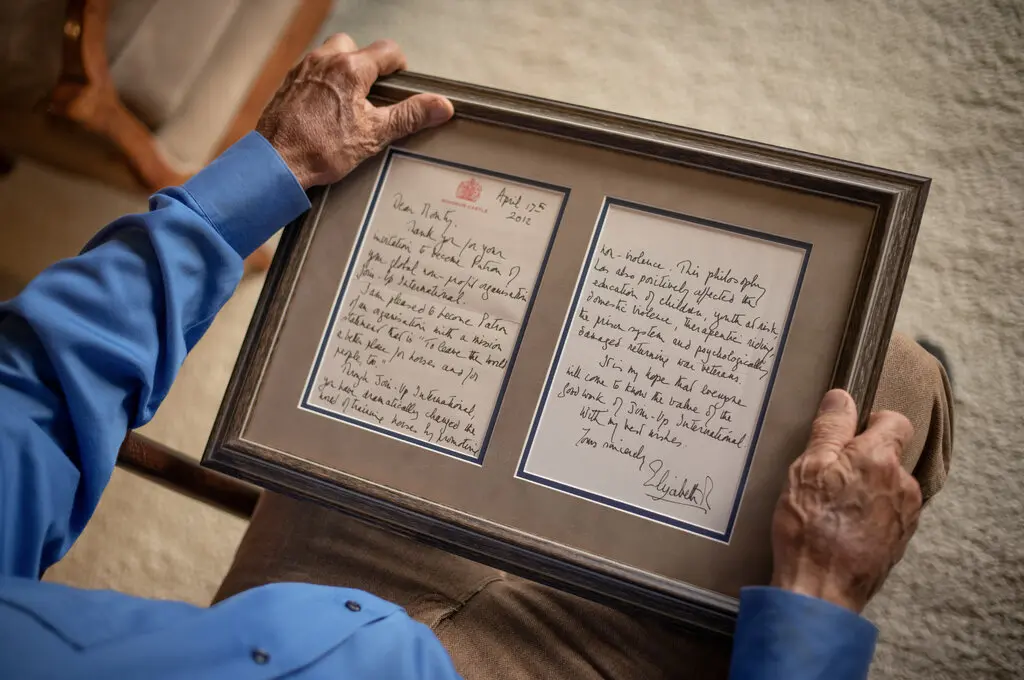 WINDSOR CASTLE
April 17th
2012
Dear Monty,
Thank you for your
invitation to become Patron of
your global non-profit organisation
Join-Up International.
I am pleased to become Patron
of an organisation with a mission
statement that is "To leave the world
a better place for horses and for
people too."
Through Join-Up International,
you have dramatically changed the
world of training horses by promoting
non-violence. This philosophy
has also positively affected the
education of children, youth at risk,
domestic violence, therapeutic riding,
the prison system and psychologically
damaged returning war veterans.
It is my hope that everyone
will come to know the value of the
good work of Join-Up International
With my best wishes
Yours sincerely
Elizabeth R